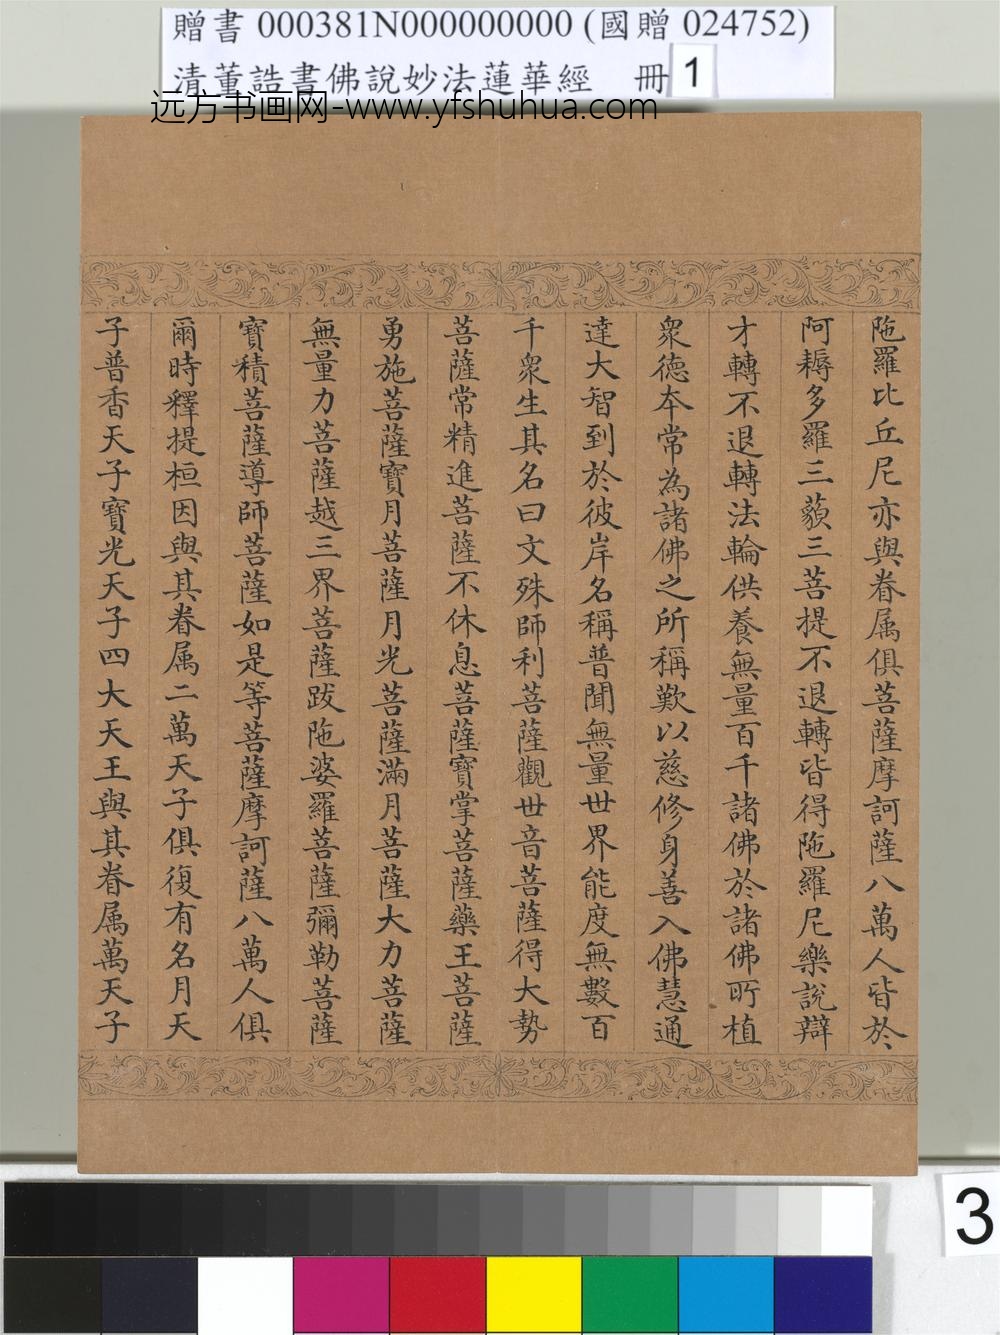 贈書 000381N000000000 (國贈 024752)
清董誥書佛說妙法蓮華經 冊 1
远方书画网-www.yfshuhua.com
陁羅比丘尼亦與眷属俱菩薩摩訶薩八萬人皆於
阿耨多羅三藐三菩提不退轉皆得陁羅尼樂說辯
才轉不退轉法輪供養無量百千諸佛於諸佛所植
衆德本常為諸佛之所稱歎以慈修身善入佛慧通
達大智到於彼岸名稱普聞無量世界能度無數百
千衆生其名曰文殊師利菩薩觀世音菩薩得大勢
菩薩常精進菩薩不休息菩薩寶掌菩薩藥王菩薩
勇施菩薩寶月菩薩月光菩薩滿月菩薩大力菩薩
無量力菩薩越三界菩薩跋陁婆羅菩薩彌勒菩薩
寶積菩薩導師菩薩如是等菩薩摩訶薩八萬人俱
爾時釋提桓因與其眷属二萬天子俱復有名月天
子普香天子寶光天子四大天王與其眷属萬天子
3